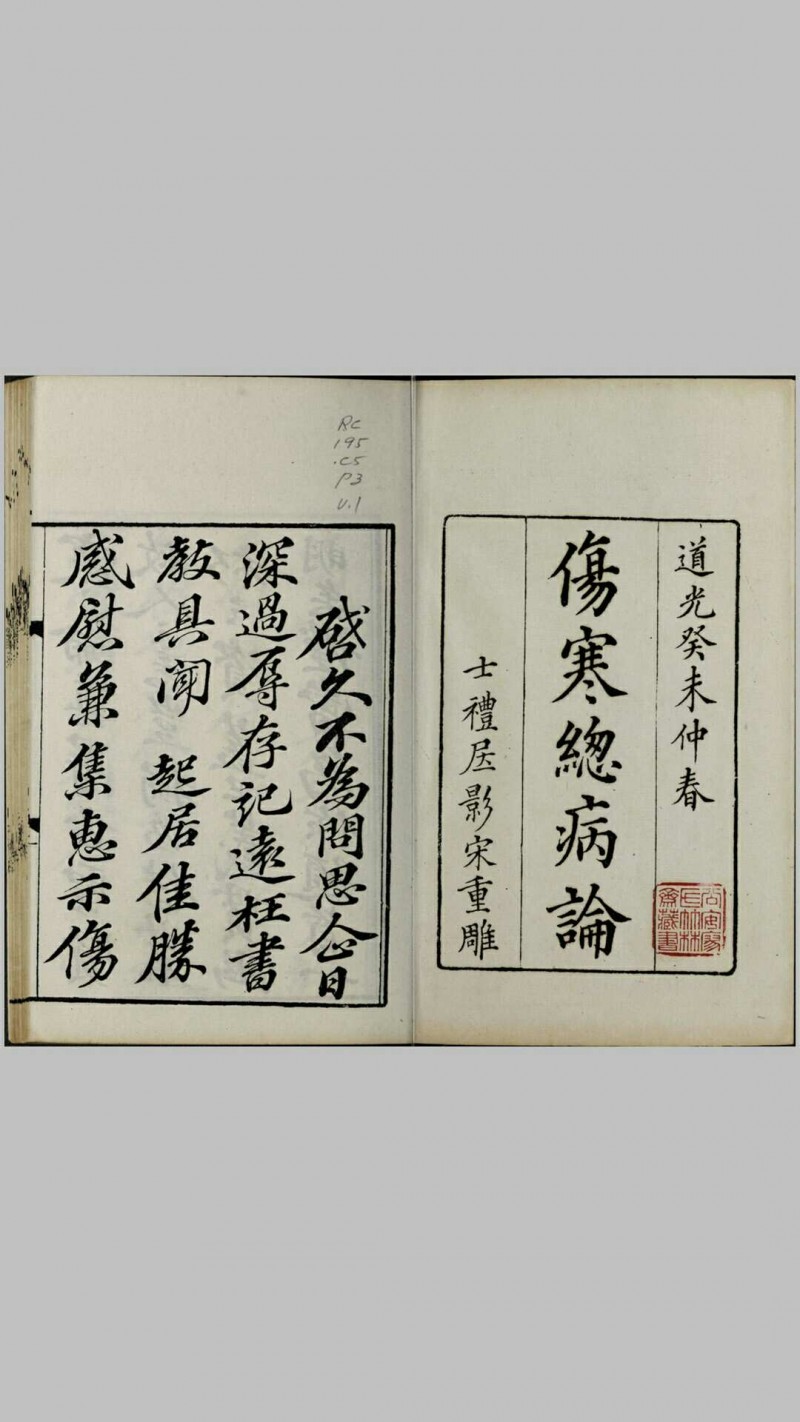 道光癸未仲春
傷寒總病論
士禮居影宋重雕
RC
195
.C5
P3
V.1
啓久不為問思企日
深過辱存記遠枉書
教具聞　起居佳勝
感慰兼集惠示傷